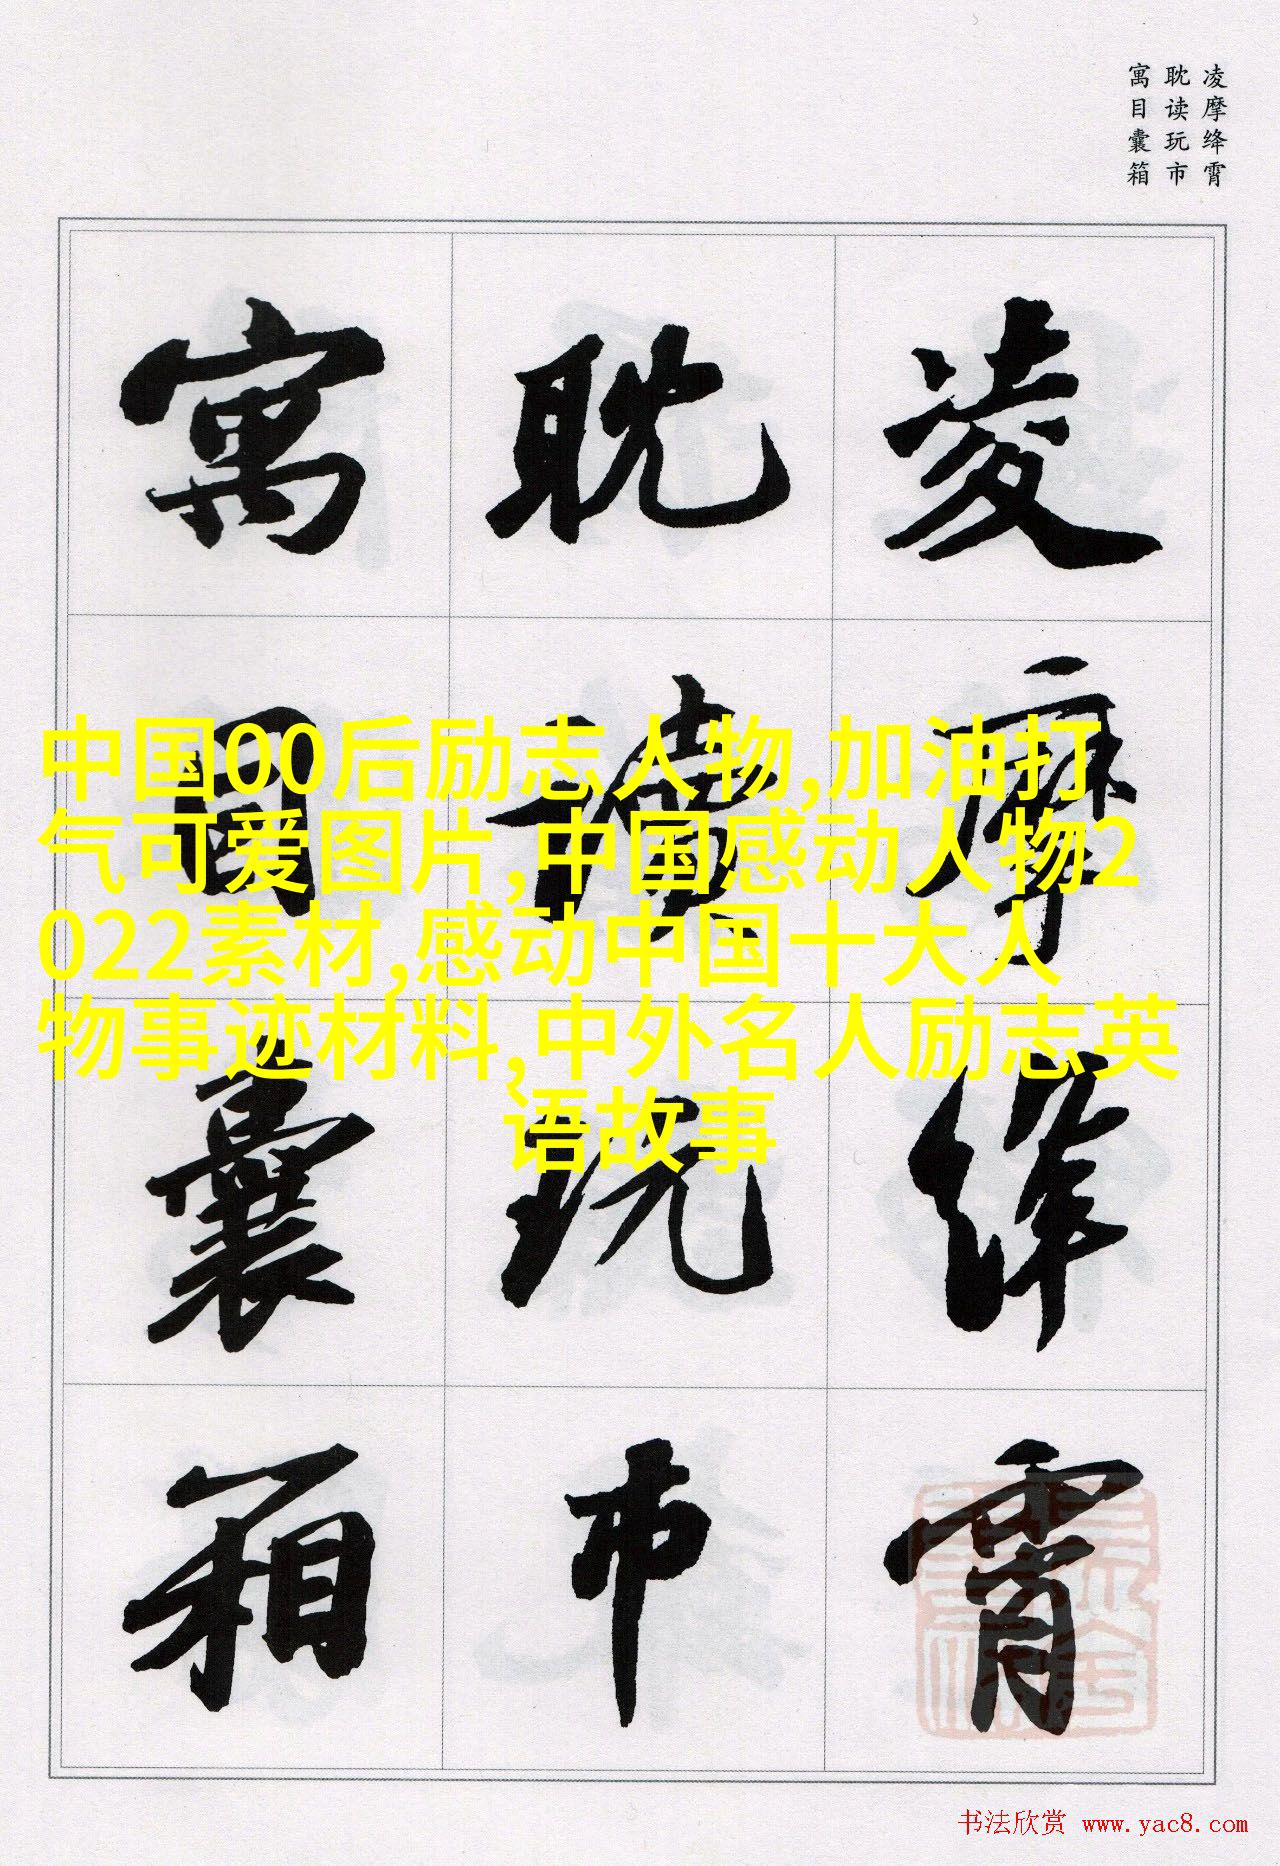 凌摩绛霄
耽读玩市
寓目囊箱
凌摩绛霄
耽读玩市
寓目囊箱
中国00后励志人物,加油打
气可爱图片,中国感动人物2
022素材,感动中国十大人
物事迹材料,中外名人励志英
语故事
书法欣赏 www.yac8.com